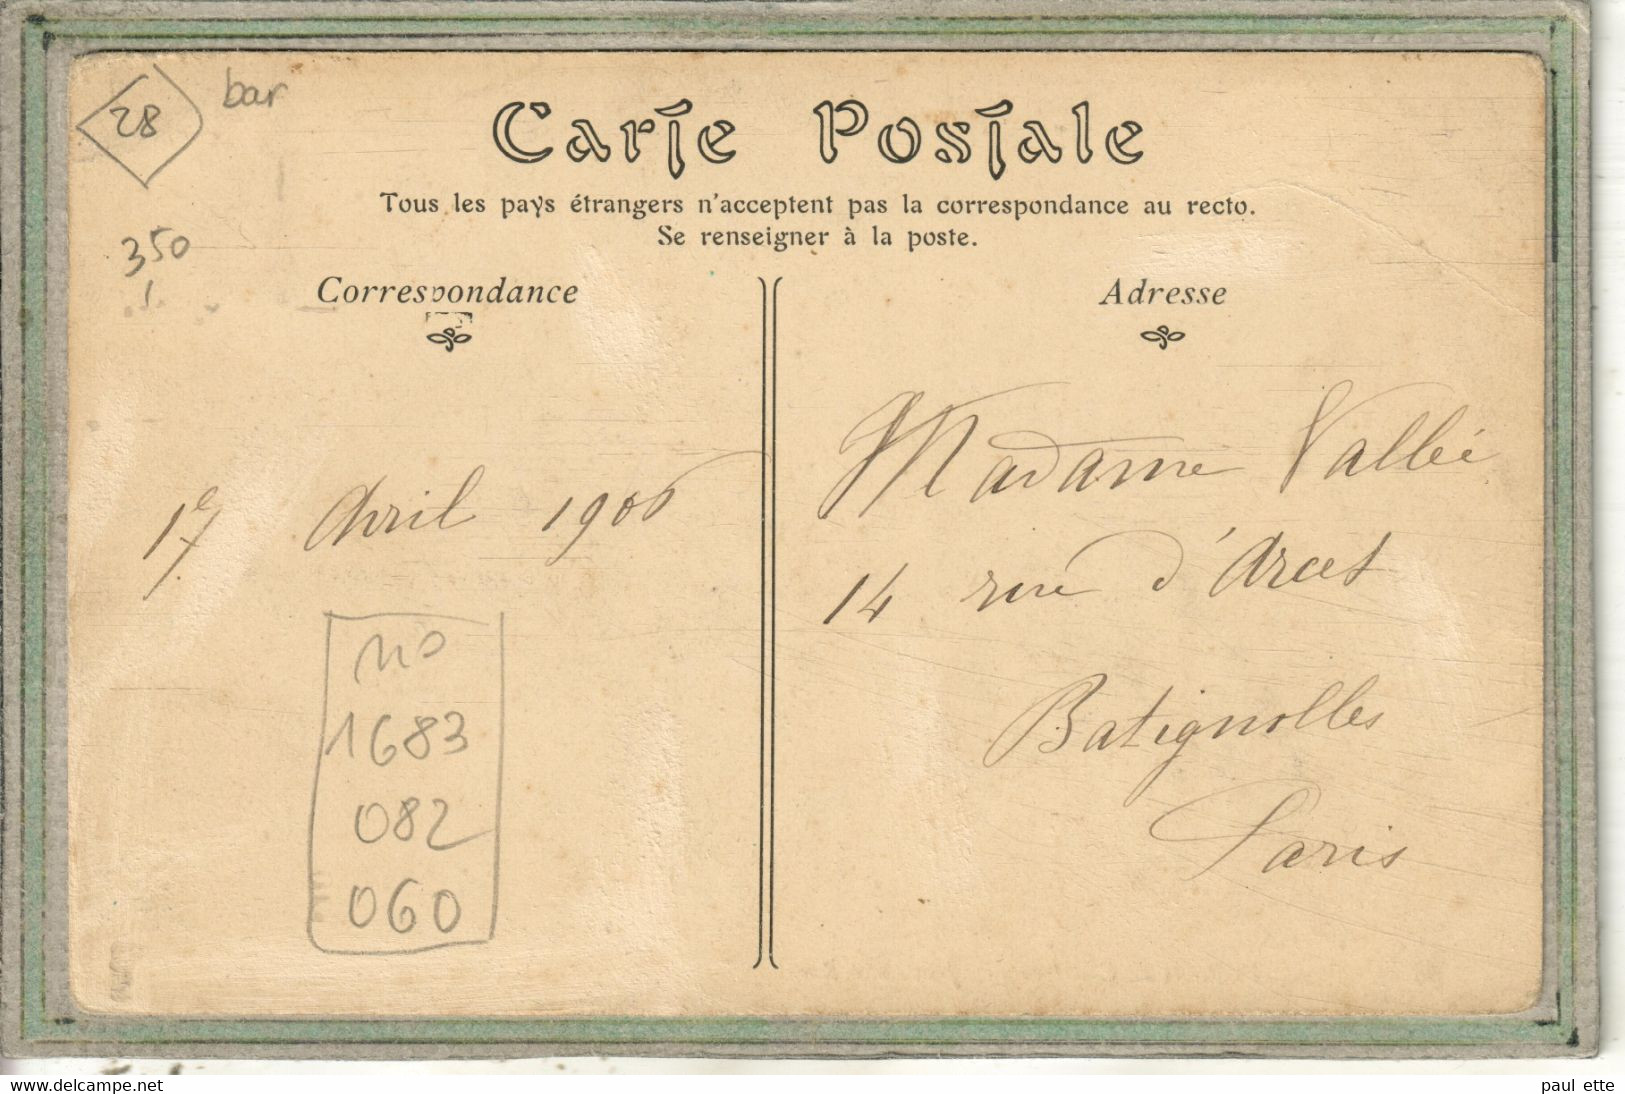 28
bar
Carte Postale
Tous les pays étrangers n'acceptent pas la correspondance au recto.
Se renseigner à la poste.
350
Correspondance
Adresse
Avril 1906
Madame Vallée
14 rue d'Arcet
Batignolles
Paris
1683
082
060
www.delcampe.net
paul ette